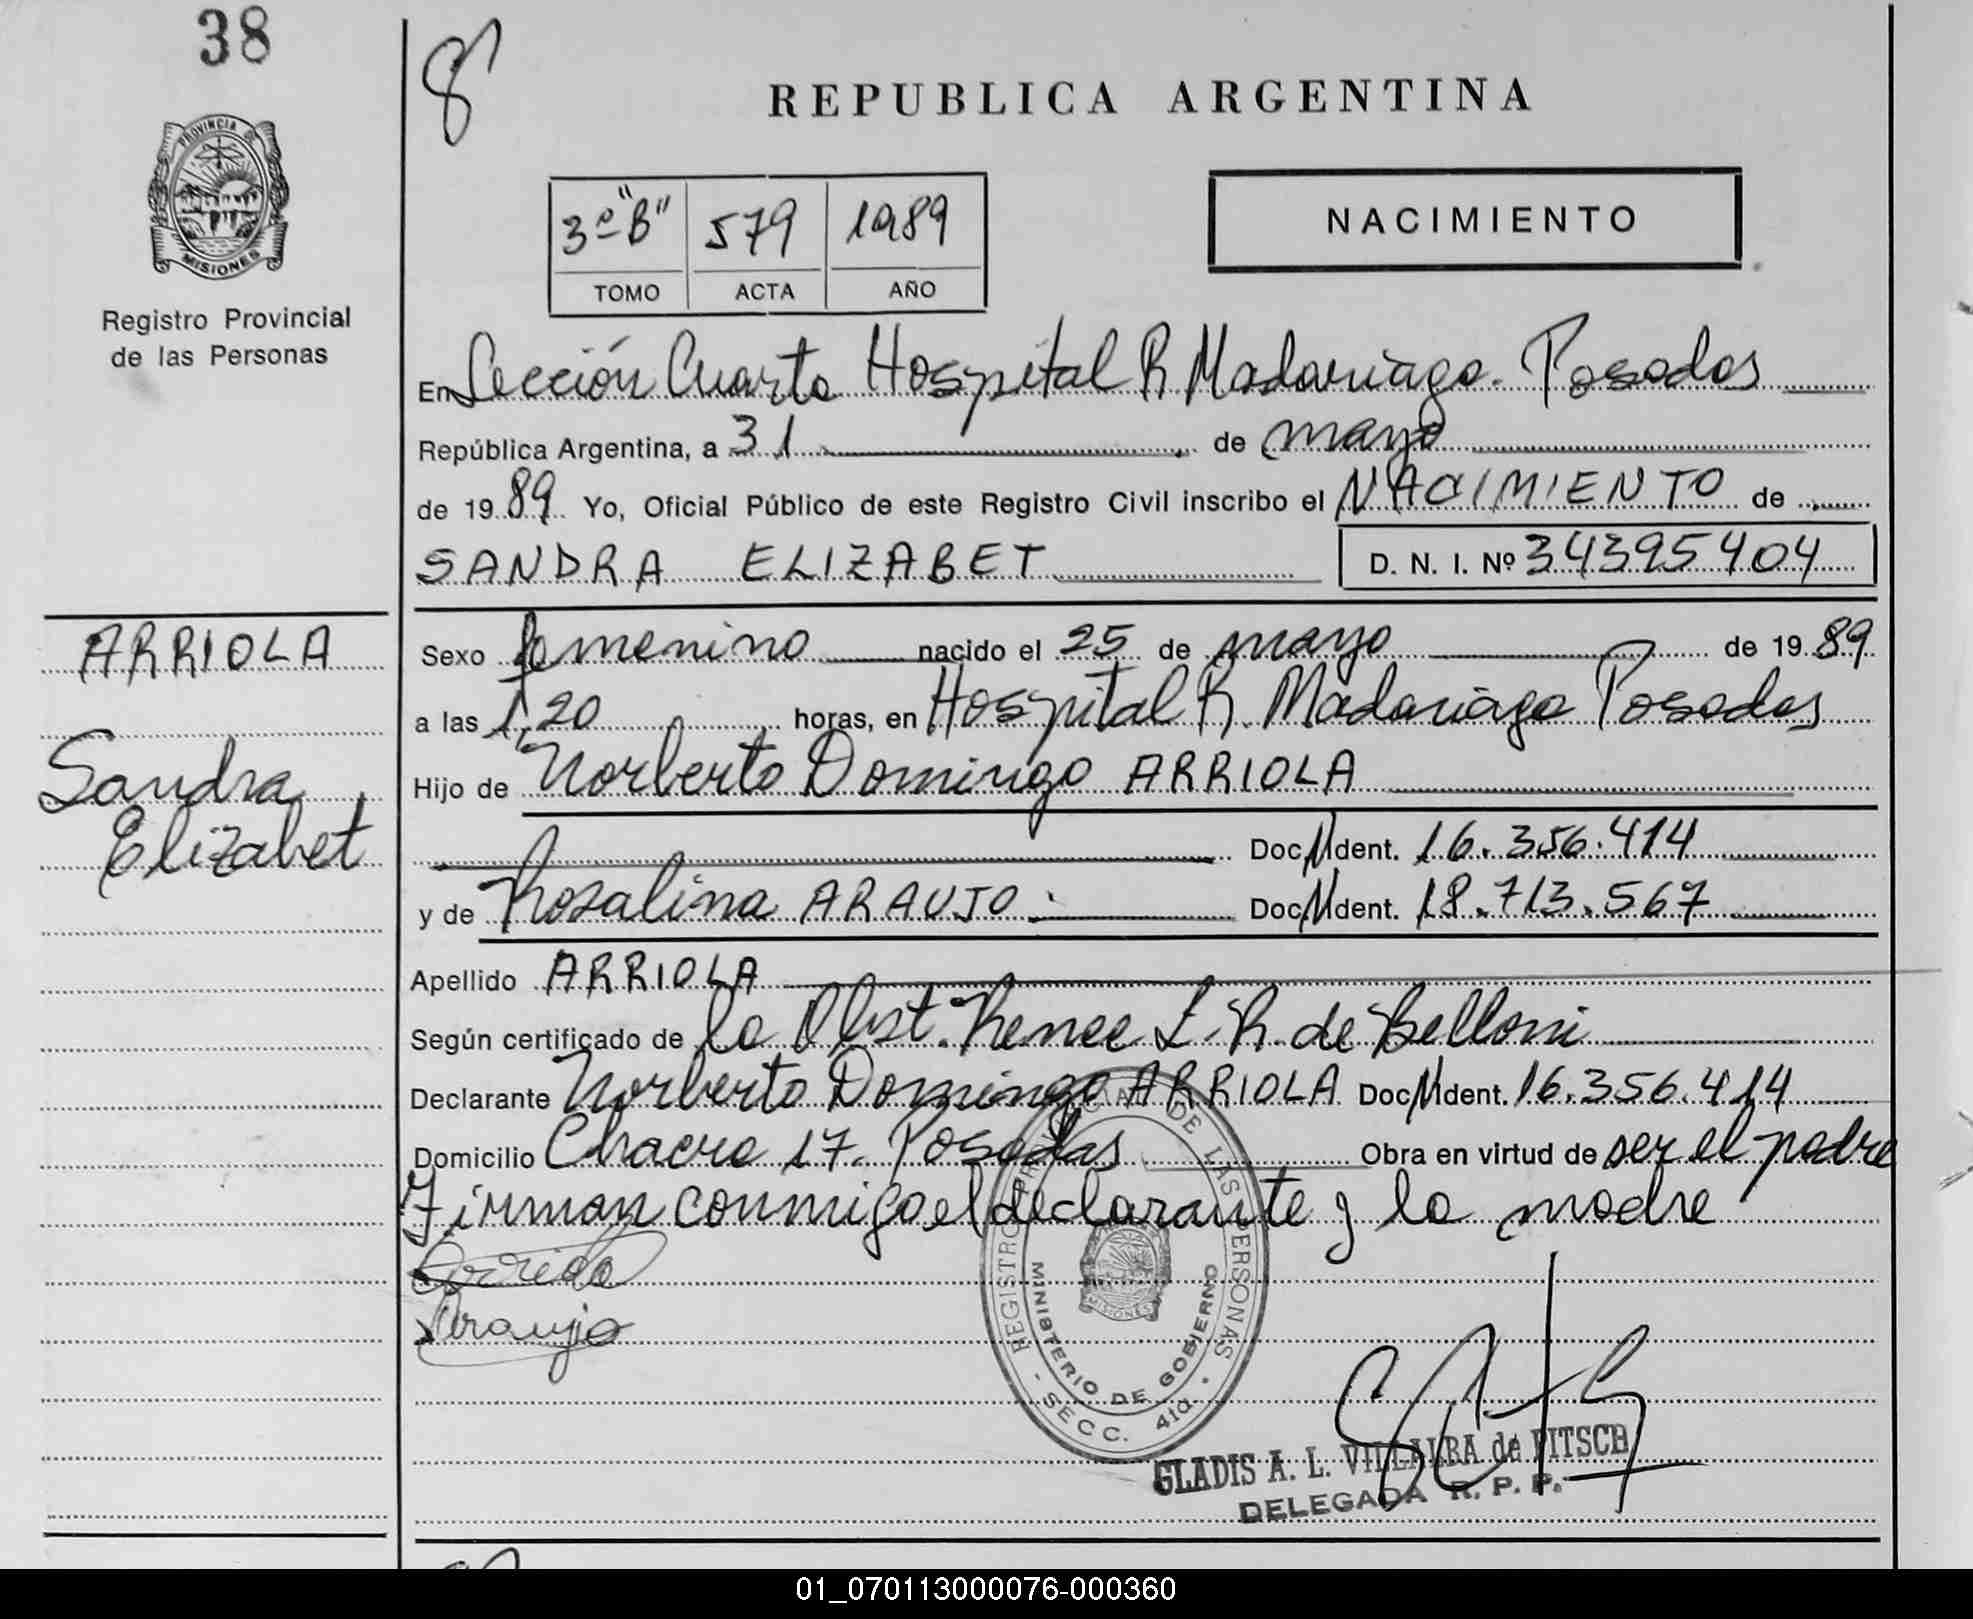 38
8
REPUBLICA ARGENTINA
PROVINCIA DE
MISIONES
Registro Provincial
de las Personas
3º "B" 579 1989
TOMO ACTA AÑO
NACIMIENTO
En Sección Cuarta Hospital R Madariaga. Posadas
República Argentina, a 31 de mayo
de 1989 Yo, Oficial Público de este Registro Civil inscribo el NACIMIENTO de
SANDRA ELIZABET D. N. I. Nº 34395404
ARRIOLA
Sandra
Elizabet
Sexo femenino nacido el 25 de mayo de 1989
a las 1,20 horas, en Hospital R. Madariaga Posadas
Hijo de Norberto Domingo ARRIOLA
Doc. Ident. 16.356.414
y de Rosalina ARAUJO. Doc. Ident. 18.713.567
Apellido ARRIOLA
Según certificado de la Obst. Renee L. R. de Belloni
Declarante Norberto Domingo ARRIOLA Doc. Ident. 16.356.414
Domicilio Chacra 17. Posadas Obra en virtud de ser el padre
Firman conmigo el declarante y la madre
Arriola
Araujo
REGISTRO PROVINCIAL DE LAS PERSONAS
MINISTERIO DE GOBIERNO
MISIONES
SECC. 4ta.
GLADIS A. L. VILLALBA de PITSCH
DELEGADA R. P. P.
01_070113000076-000360